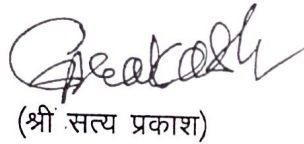 (श्री सत्य प्रकाश)